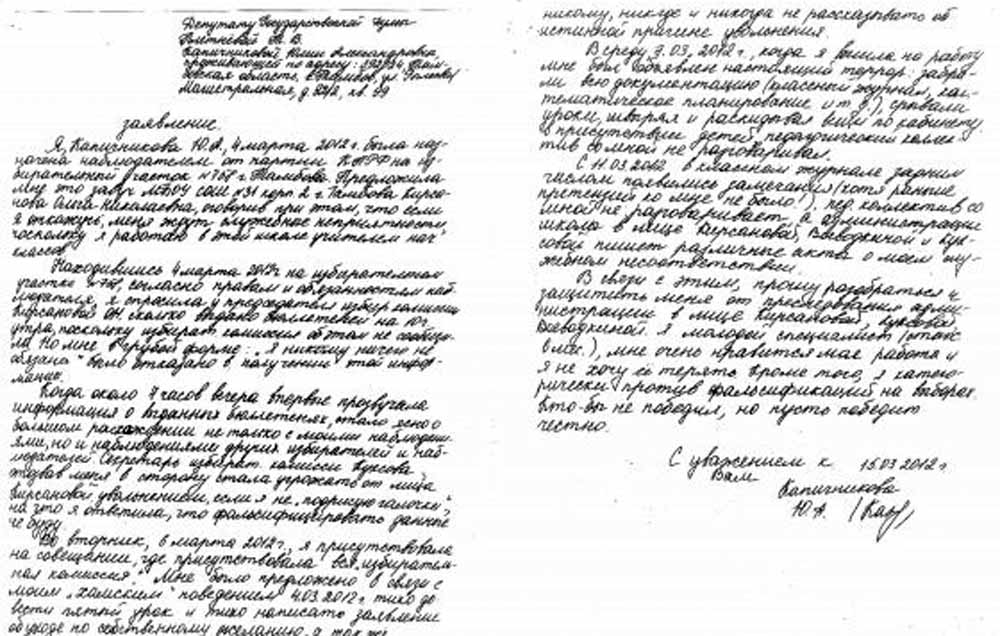 Депутату Государственной Думы
Плетнёвой Т. В.
Капичниковой Юлии Александровны,
проживающей по адресу: 392 Там-
бовская область, г. Тамбов, ул.
Магистральная, д. кв. 99
заявление.
Я, Капичникова Ю.А, 4 марта 2012 г. была наз-
начена наблюдателем от партии КПРФ на из-
бирательный участок №768 г. Тамбова. Предложила
мне это завуч МБОУ СОШ №31 корп 2 г. Тамбова Кирса-
нова Ольга Николаевна, оговорив при этом, что если
я откажусь, меня ждут служебные неприятности,
поскольку я работаю в этой школе учителем нач.
классов.
Находившись 4 марта 2012г на избирательном
участке №768, согласно правам и обязанностям наб-
людателя, я спросила у председателя избир. комиссии
Кирсановой О.Н. сколько выдано бюллетеней на 10ч
утра, поскольку избират. комиссия об этом не сообщи-
ла. Но мне в грубой форме: „Я никому ничего не
обязана" было отказано в получении этой инфор-
мации.
Когда около 7 часов вечера впервые прозвучала
информация о выданных бюллетенях, стало ясно о
большом расхождении не только с моими наблюдени-
ями, но и наблюдениями других избирателей и наб-
людателей. Секретарь избират. комиссии Кусова
отозвав меня в сторону стала угрожать от лица
Кирсановой увольнением, если я не „подрисую галочки",
на что я ответила, что фальсифицировать данные
не буду.
Во вторник, 6 марта 2012г., я присутствовала
на совещании, где присутствовала вся „избиратель-
ная комиссия". Мне было предложено в связи с
моим „хамским" поведением 4.03.2012 г. тихо до-
вести пятый урок и тихо написать заявление
об уходе по собственному желанию, а также
никому, нигде и никогда не рассказывать об
истинной причине увольнения.
В среду 7.03.2012г., когда я вышла на работу
мне был объявлен настоящий террор: забра-
ли всю документацию (классный журнал, кал.-
тематическое планирование и т.д.), срывали
уроки, швыряя и раскидывая вещи по кабинету
в присутствии детей, педагогический коллек-
тив со мной не разговаривал.
С 11.03.2012 в классном журнале задним
числом появились замечания (хотя раньше
претензий ко мне не было!), пед. коллектив со
мной не разговаривает, а администрация
школы в лице Кирсановой, Выводкиной и Кус-
совой пишет различные акты о моём слу-
жебном несоответствии.
В связи с этим, прошу разобраться и
защитить меня от преследования адми-
нистрации в лице Кирсановой, Кусовой,
Выводкиной. Я молодой специалист (стаж
мес.), мне очень нравится моя работа и
я не хочу её терять. Кроме того, я катего-
рически против фальсификаций на выборах.
Кто-бы не победил, но пусть победит
честно.
С уважением к 15.03.2012г
Вам Капичникова
Ю.А.